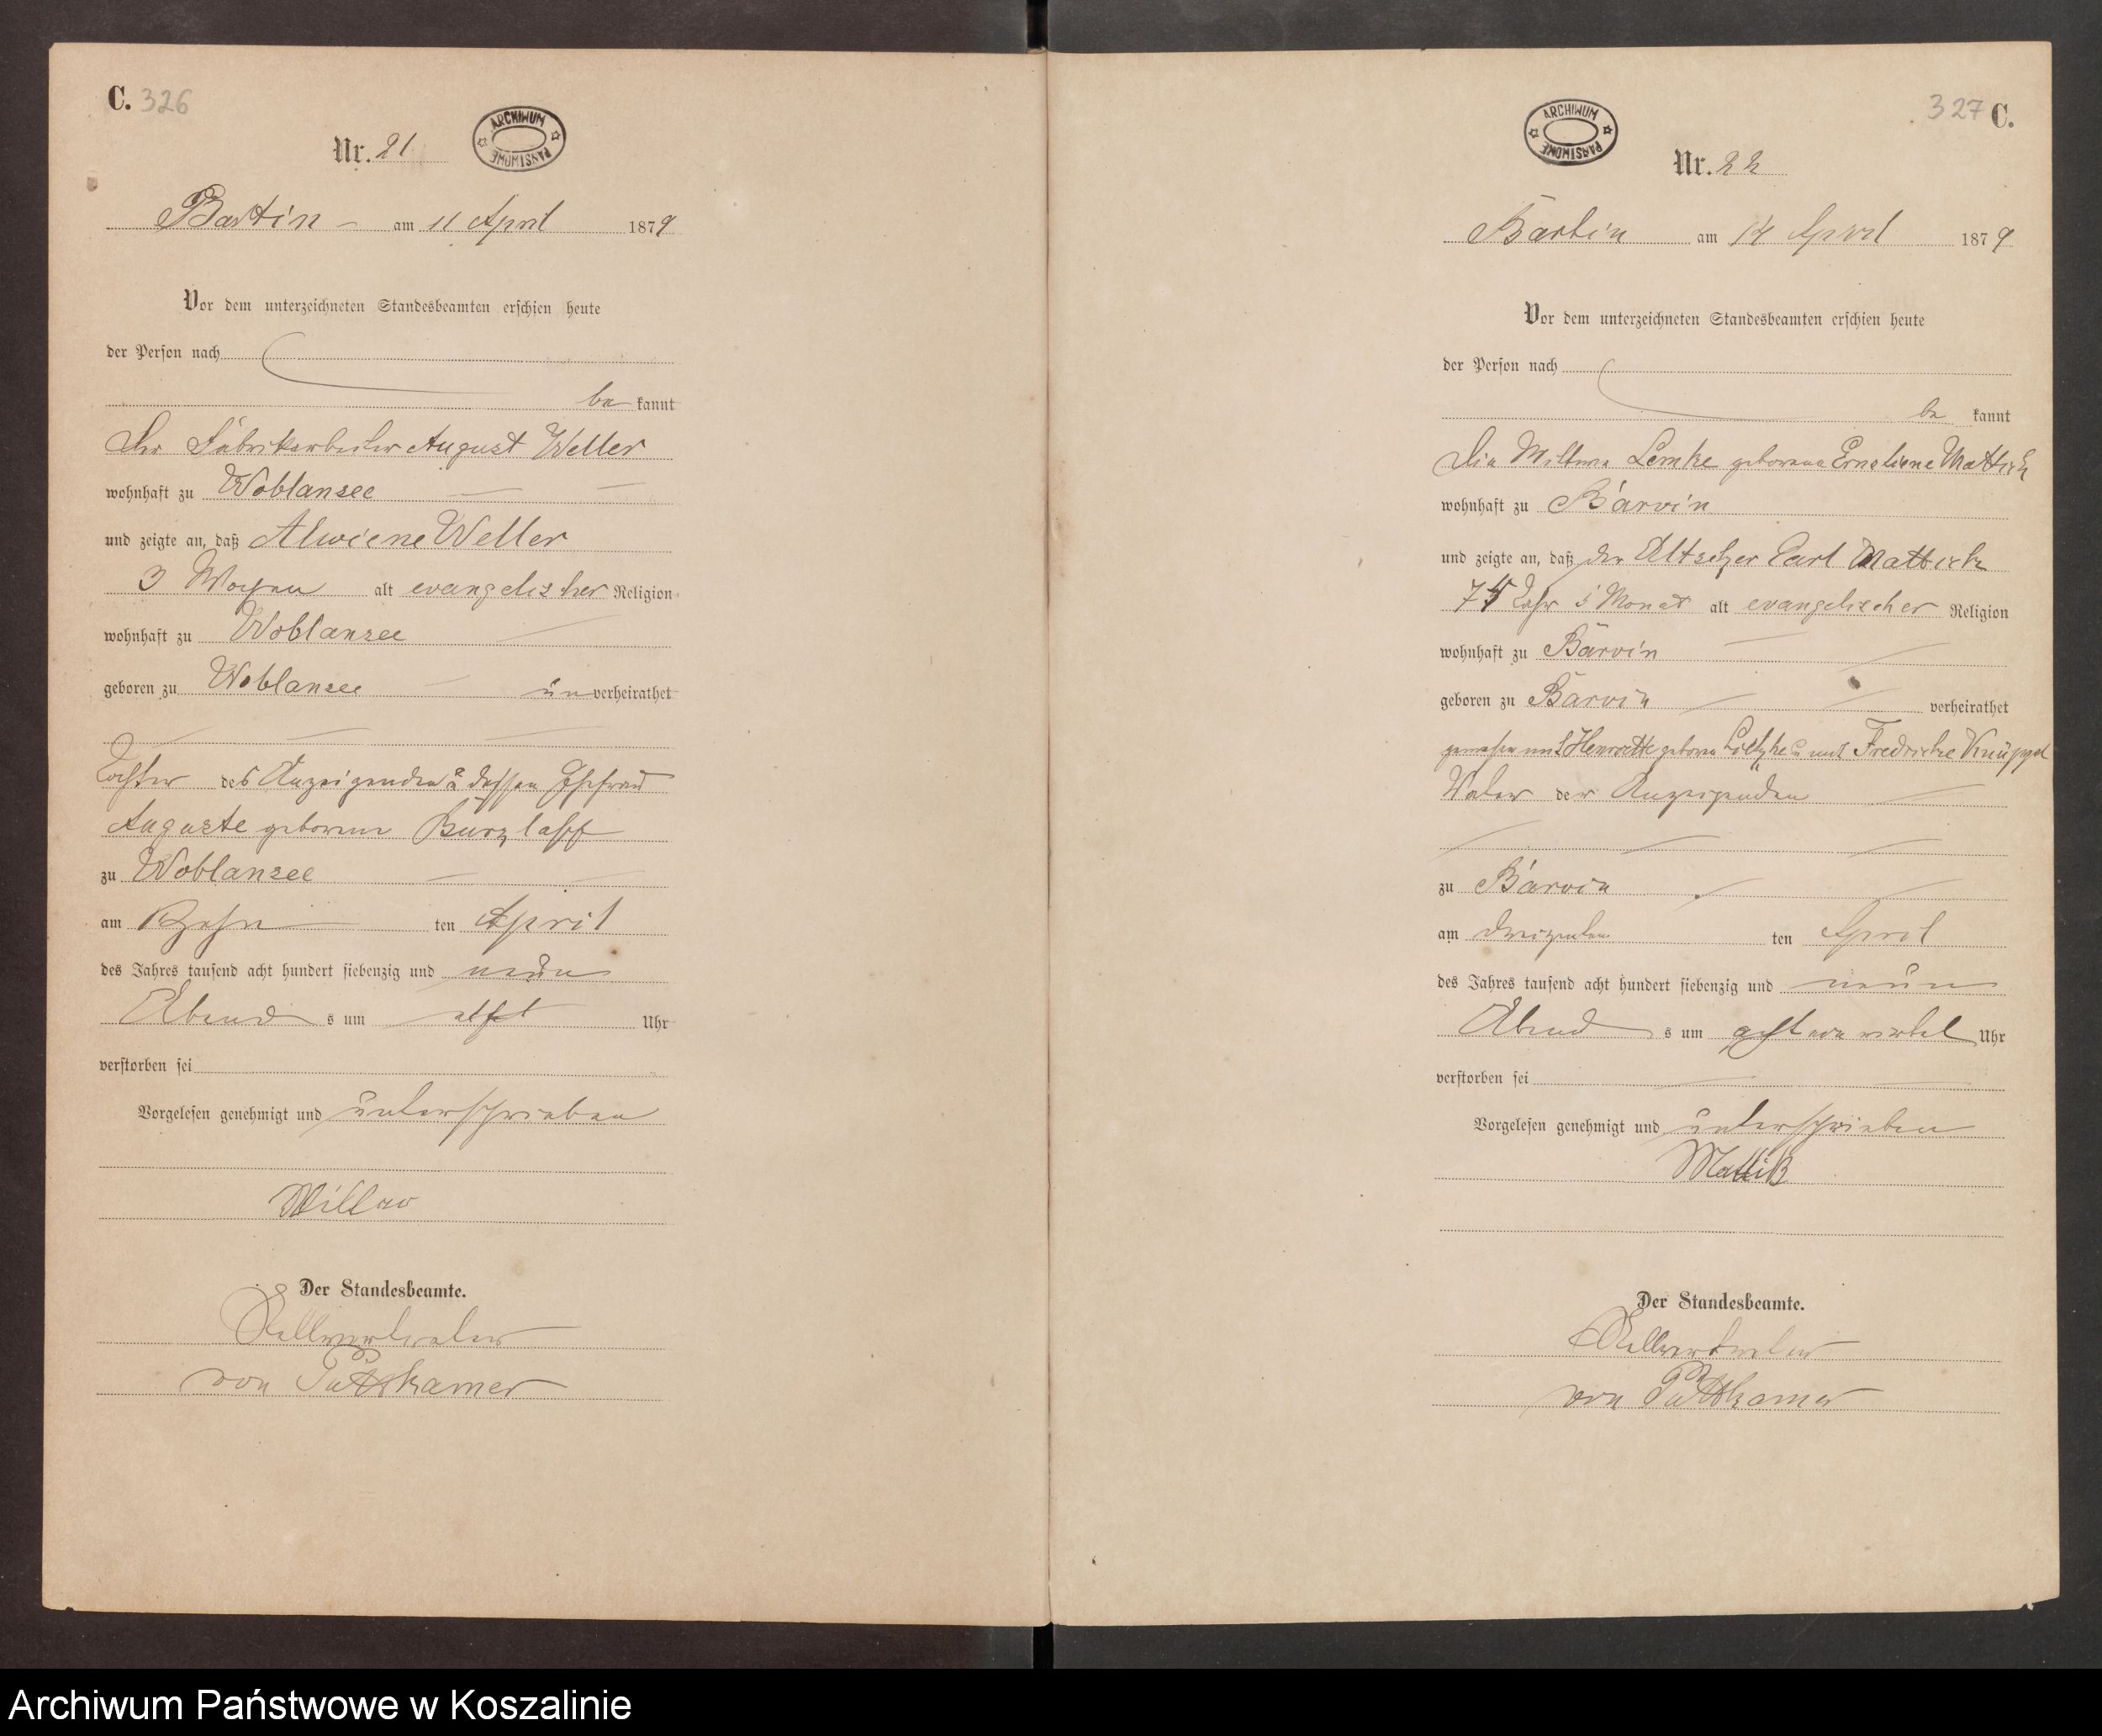 C. 326
ARCHIWUM PAŃSTWOWE
Nr. 21
Bartin am 11 April 1879
Vor dem unterzeichneten Standesbeamten erschien heute
der Person nach
be kannt
Der Fabrikarbeiter August Weller
wohnhaft zu Woblansee
und zeigte an, daß Alwiene Weller
3 Wochen alt evangelischer Religion
wohnhaft zu Woblansee
geboren zu Woblansee un verheirathet
Tochter des Anzeigenden u dessen Ehefrau
Auguste geborene Burzlaff
zu Woblansee
am Zehn ten April
des Jahres tausend acht hundert siebenzig und neun
Abend s um Uhr
verstorben sei
Vorgelesen genehmigt und unterschrieben
Der Standesbeamte.
Stellvertreter
von Puttkamer
327 C.
ARCHIWUM PAŃSTWOWE
Nr. 22
Bartin am 14 April 1879
Vor dem unterzeichneten Standesbeamten erschien heute
der Person nach
be kannt
Die Wittwe Lemke geborene Erneliene Mattick
wohnhaft zu Barvin
und zeigte an, daß der Altsitzer Carl Mattick
Jahr 5 Monat alt evangelischer Religion
wohnhaft zu Barvin
geboren zu Barvin verheirathet
gewesen mit Henriette geborne u mit Fredricke Knüppel
Vater der Anzeigenden
zu Barvin
am dreizenten ten April
des Jahres tausend acht hundert siebenzig und neun
Abend s um acht Uhr
verstorben sei
Vorgelesen genehmigt und unterschrieben
Mattik
Der Standesbeamte.
Stellvertreter
von Puttkamer
Archiwum Państwowe w Koszalinie